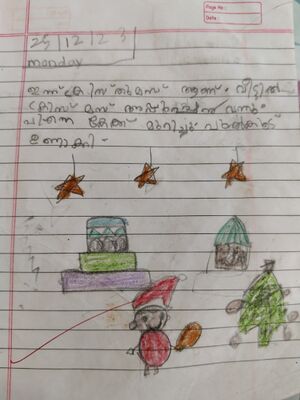 Page No.:
Date:
25/12/23
monday
ഇന്ന് ക്രിസ്തുമസ് ആണ്. വീട്ടിൽ
ക്രിസ്മസ് അപ്പൂപ്പൻ വന്നു.
പിന്നെ കേക്ക് മുറിച്ചു